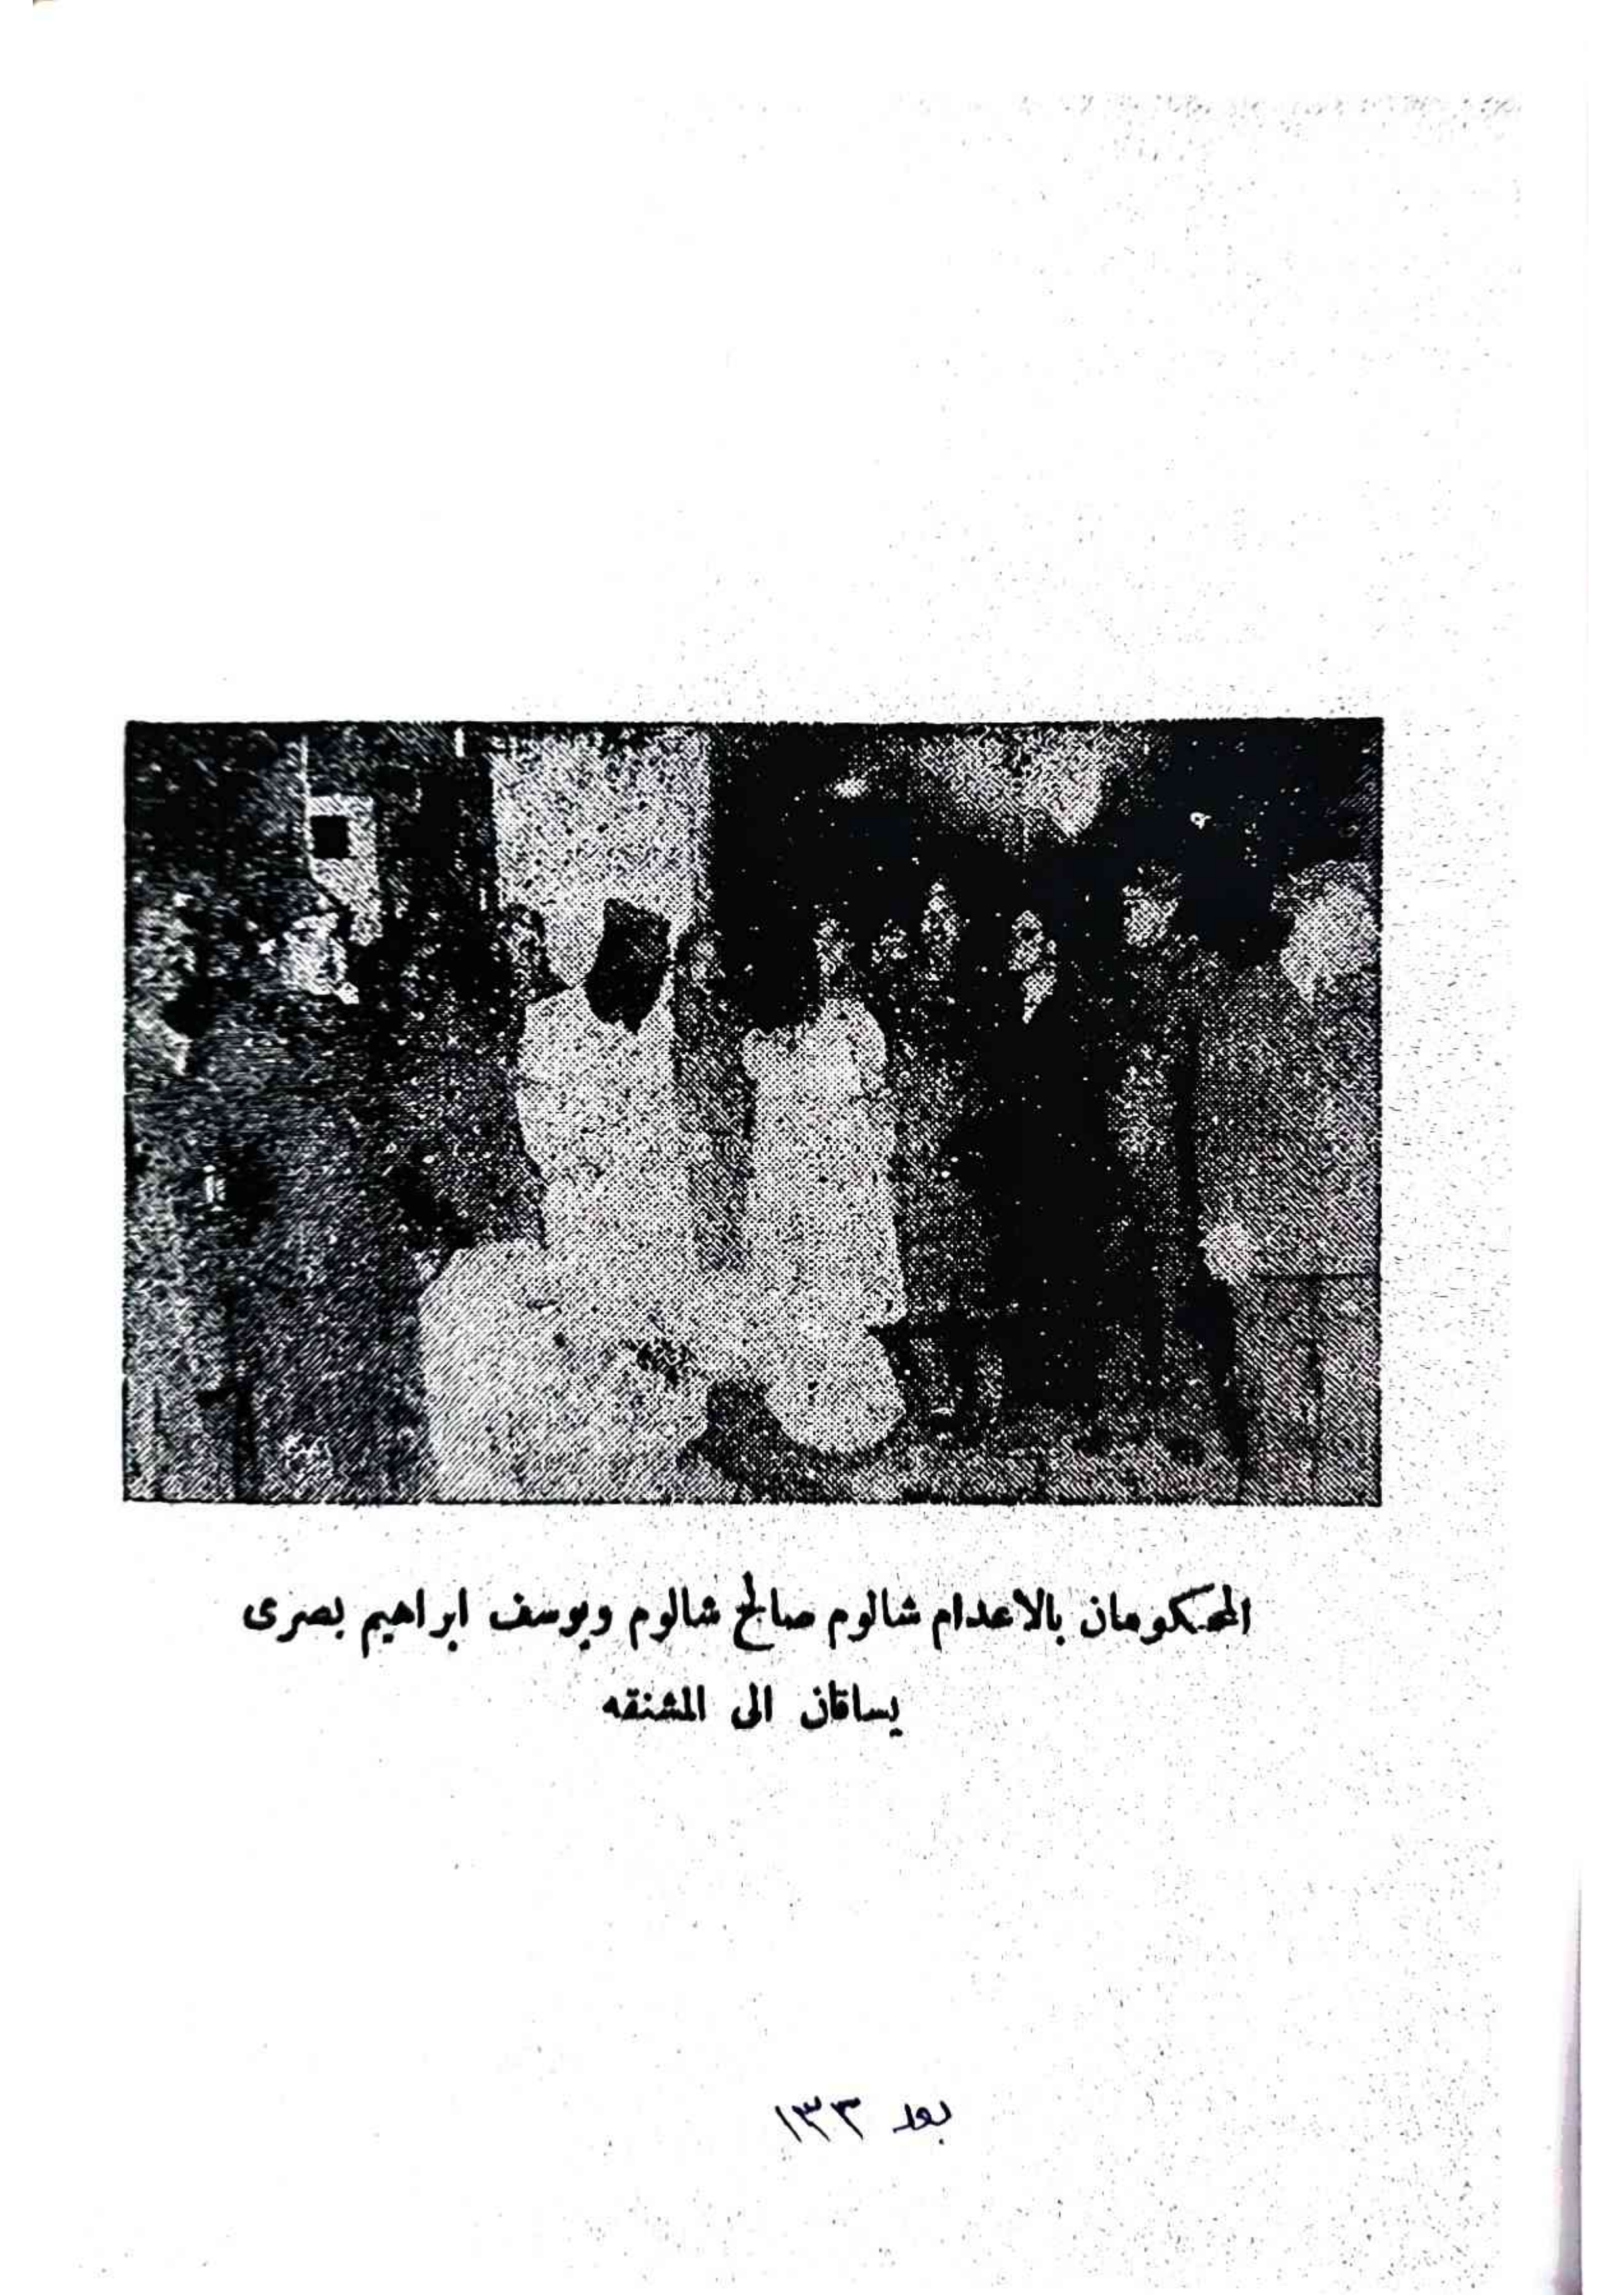 المحكومان بالاعدام شالوم صالح شالوم ويوسف ابراهيم بصرى
يساقان الى المشنقه
بعد ١٣٣